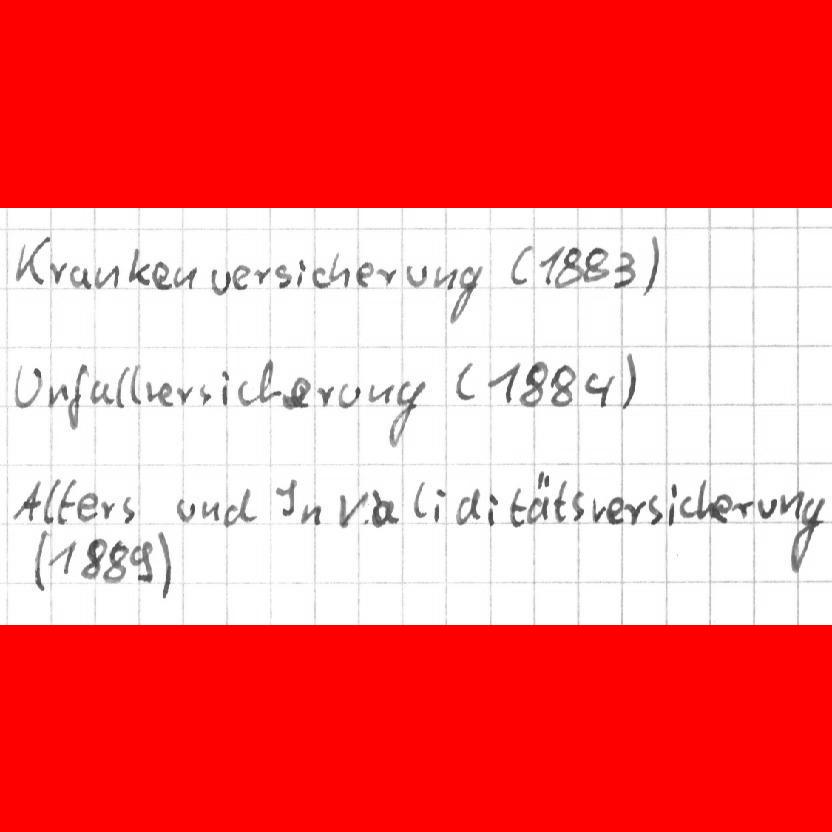 Krankenversicherung (1883)
Unfallversicherung (1884)
Alters und Invaliditätsversicherung
(1889)